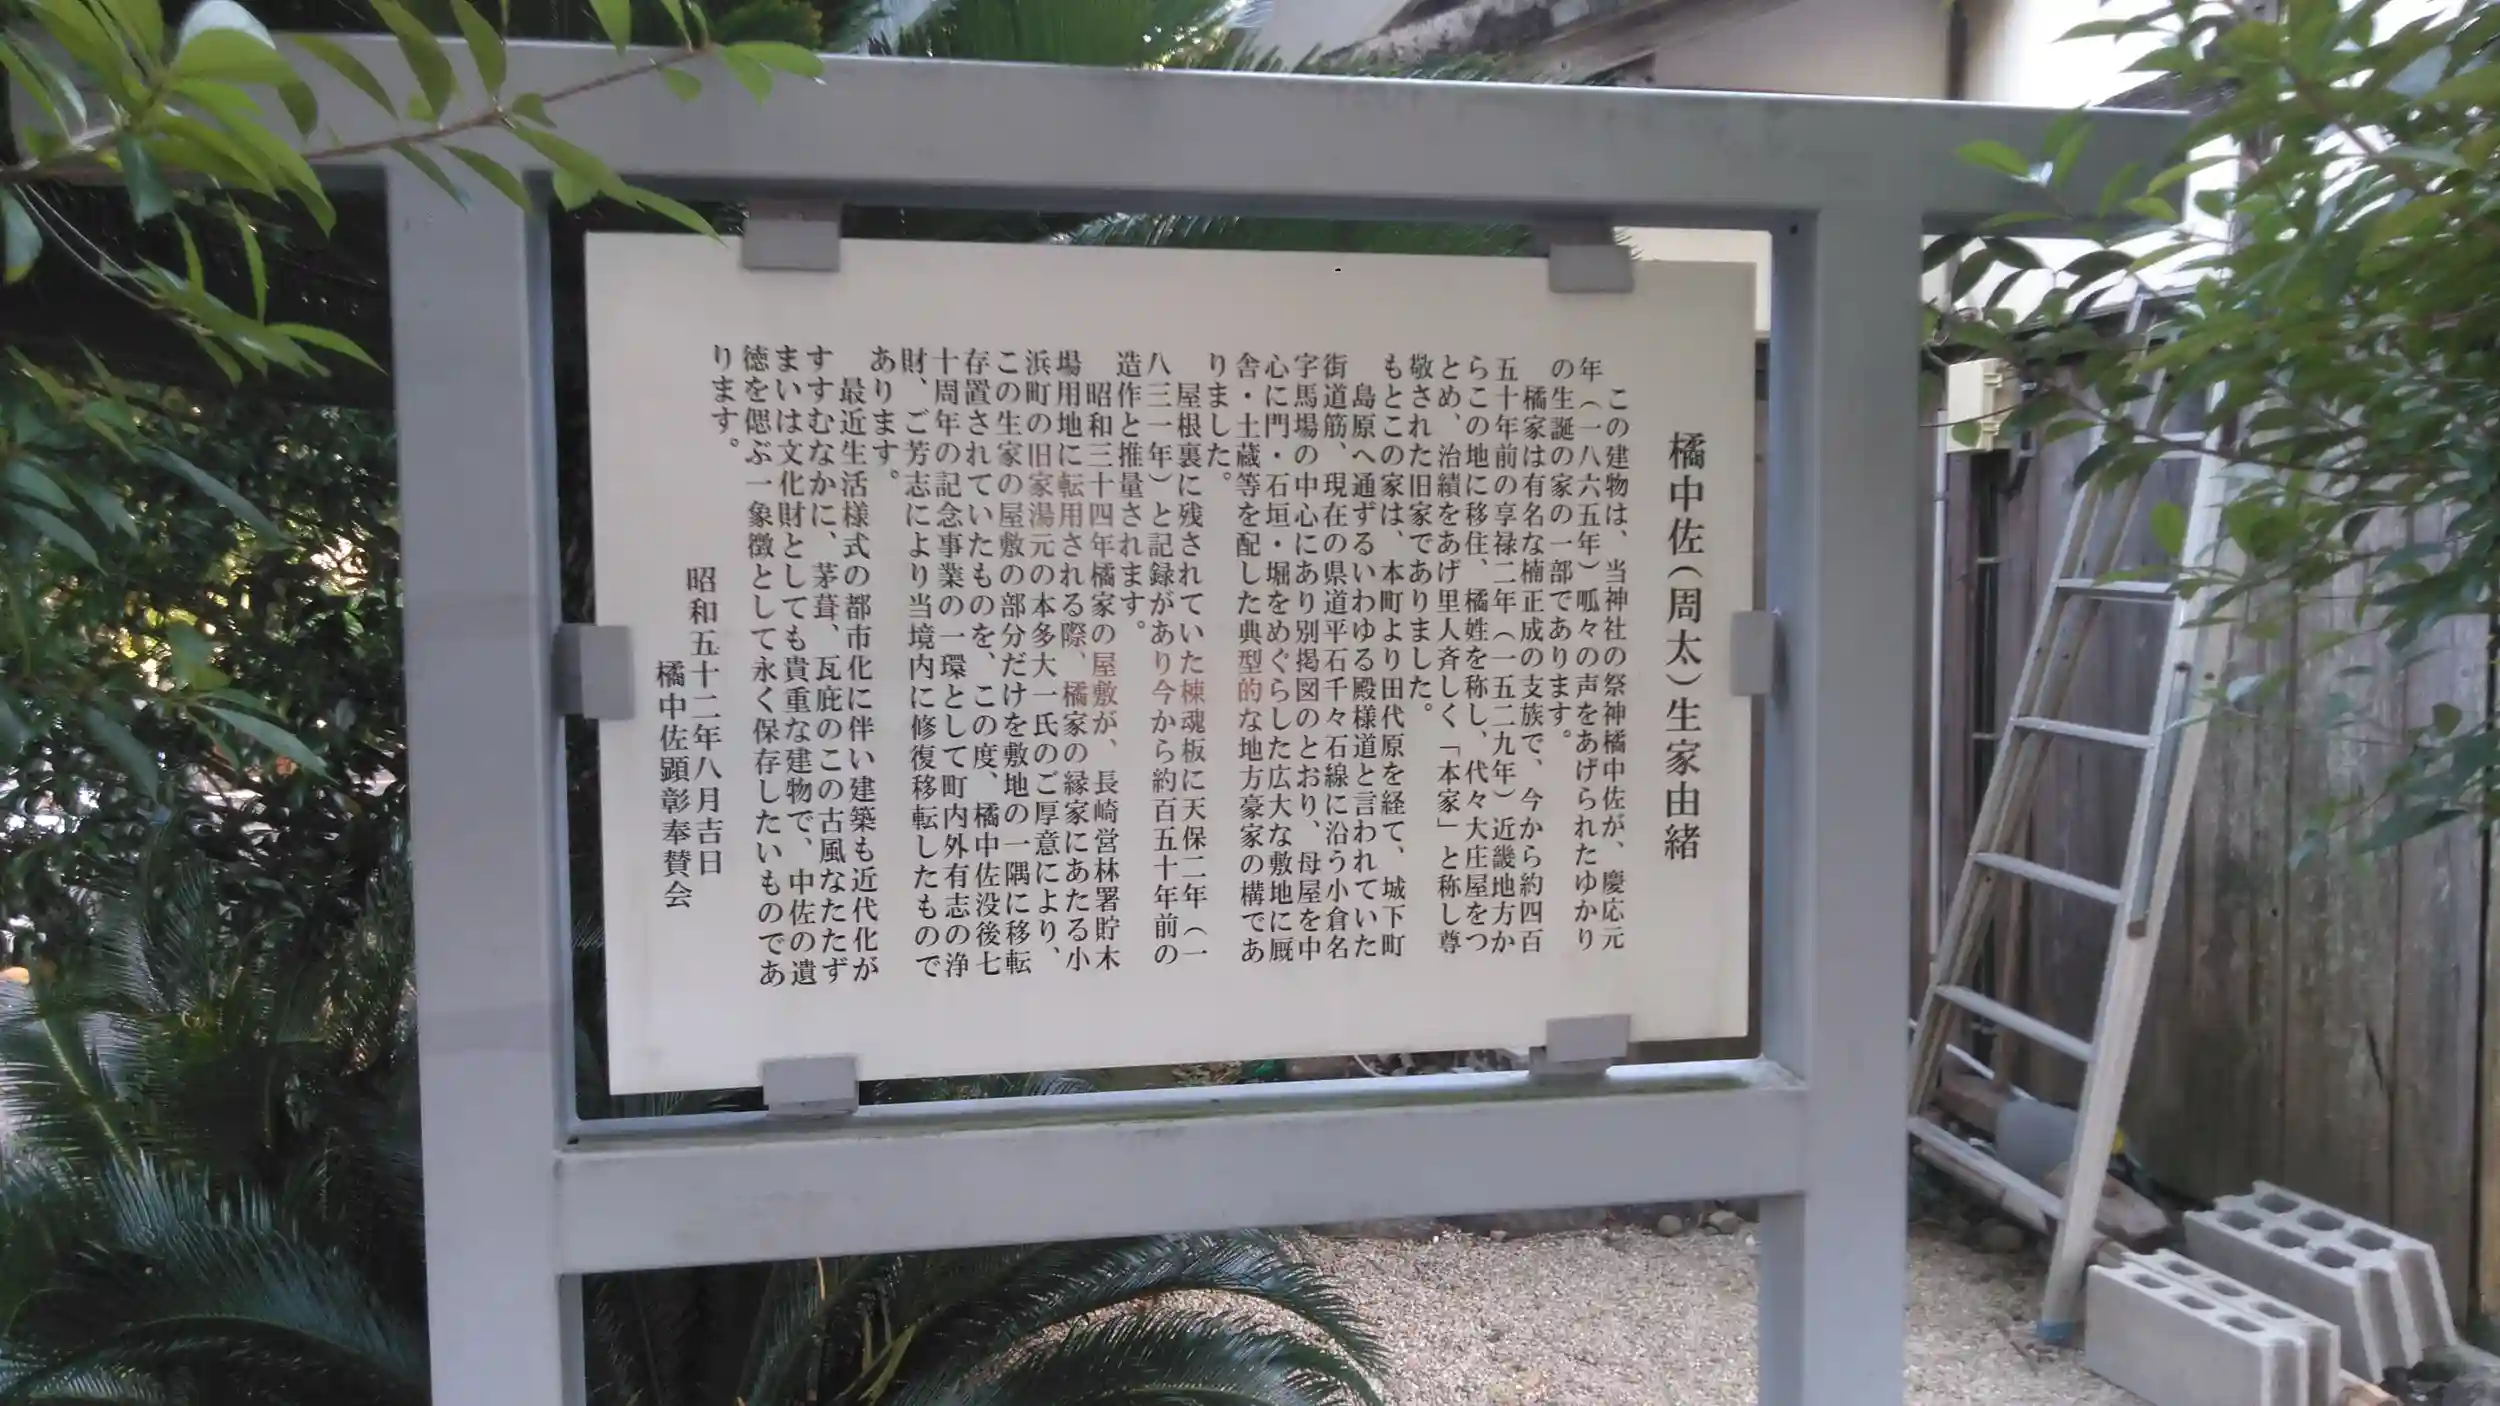 橘中佐（周太）生家由緒
この建物は、当神社の祭神橘中佐が、慶応元
年（一八六五年）呱々の声をあげられたゆかり
の生誕の家の一部であります。
橘家は有名な楠正成の支族で、今から約四百
五十年前の享禄二年（一五二九年）近畿地方か
らこの地に移住、橘姓を称し、代々大庄屋をつ
とめ、治績をあげ里人斉しく「本家」と称し尊
敬された旧家でありました。
もとこの家は、本町より田代原を経て、城下町
島原へ通ずるいわゆる殿様道と言われていた
街道筋、現在の県道平石千々石線に沿う小倉名
字馬場の中心にあり別掲図のとおり、母屋を中
心に門・石垣・堀をめぐらした広大な敷地に厩
舎・土蔵等を配した典型的な地方豪家の構であ
りました。
屋根裏に残されていた棟魂板に天保二年（一
八三一年）と記録があり今から約百五十年前の
造作と推量されます。
昭和三十四年橘家の屋敷が、長崎営林署貯木
場用地に転用される際、橘家の縁家にあたる小
浜町の旧家湯元の本多大一氏のご厚意により、
この生家の屋敷の部分だけを敷地の一隅に移転
存置されていたものを、この度、橘中佐没後七
十周年の記念事業の一環として町内外有志の浄
財、ご芳志により当境内に修復移転したもので
あります。
最近生活様式の都市化に伴い建築も近代化が
すすむなかに、茅葺、瓦庇のこの古風なたたず
まいは文化財としても貴重な建物で、中佐の遺
徳を偲ぶ一象徴として永く保存したいものであ
ります。
昭和五十二年八月吉日
橘中佐顕彰奉賛会